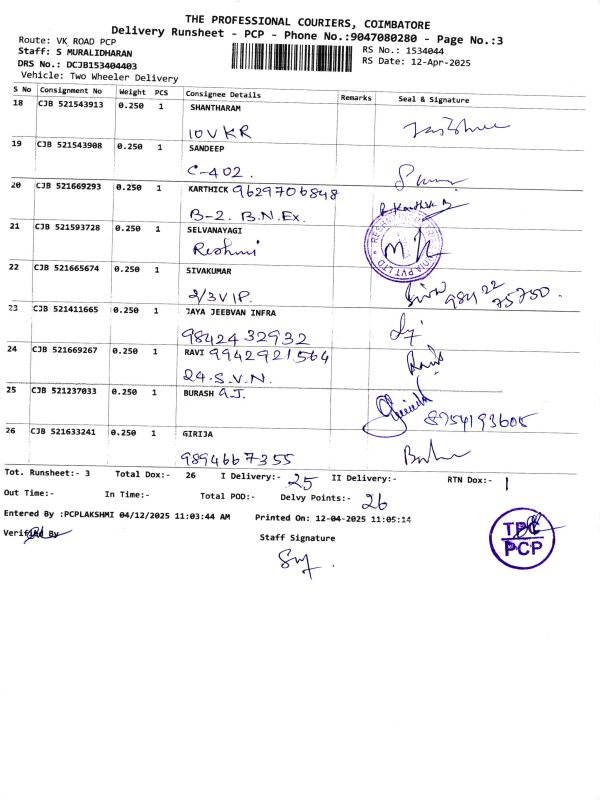 THE PROFESSIONAL COURIERS, COIMBATORE
Delivery Runsheet - PCP - Phone No.:9047080280 - Page No.:3
Route: VK ROAD PCP
RS No.: 1534044
Staff: S MURALIDHARAN
RS Date: 12-Apr-2025
DRS No.: DCJB153404403
Vehicle: Two Wheeler Delivery
S No Consignment No Weight PCS Consignee Details Remarks Seal & Signature
18 CJB 521543913 0.250 1 SHANTHARAM
10 VKR
19 CJB 521543908 0.250 1 SANDEEP
C-402.
20 CJB 521669293 0.250 1 KARTHICK 9629706848
B-2. B.N.Ex.
21 CJB 521593728 0.250 1 SELVANAYAGI
Reshmi
22 CJB 521665674 0.250 1 SIVAKUMAR
2/3 VIP. 98422 75750.
23 CJB 521411665 0.250 1 JAYA JEEBVAN INFRA
9842432932
24 CJB 521669267 0.250 1 RAVI 9942921564
24. S.V.N.
25 CJB 521237033 0.250 1 BURASH G.J.
8754193605
26 CJB 521633241 0.250 1 GIRIJA
9894667355
Tot. Runsheet:- 3 Total Dox:- 26 I Delivery:- 25 II Delivery:- RTN Dox:- 1
Out Time:- In Time:- Total POD:- Delvy Points:- 26
Entered By :PCPLAKSHMI 04/12/2025 11:03:44 AM Printed On: 12-04-2025 11:05:14
Verified By
Staff Signature
TPC
PCP